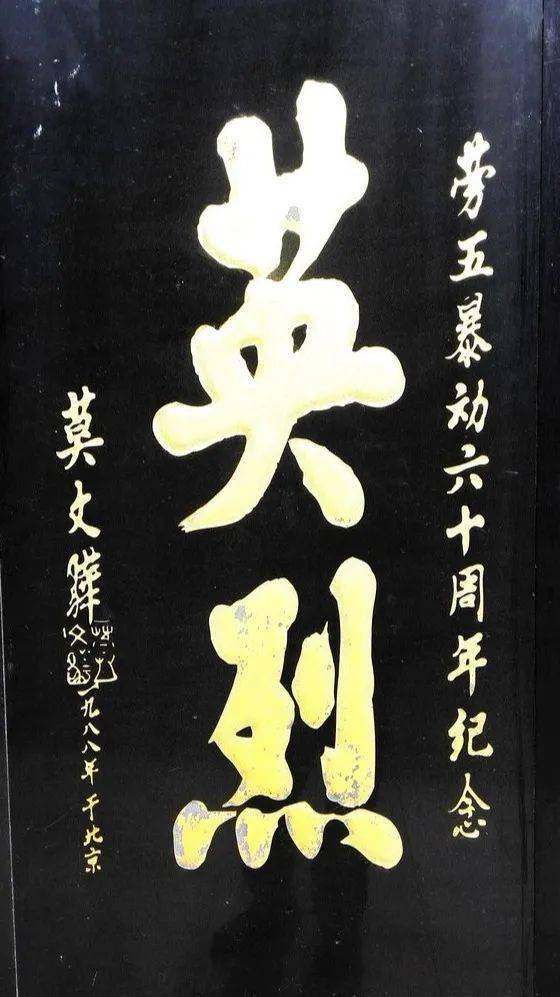 劳五暴动六十周年纪念
英烈
莫文骅
一九八八年于北京